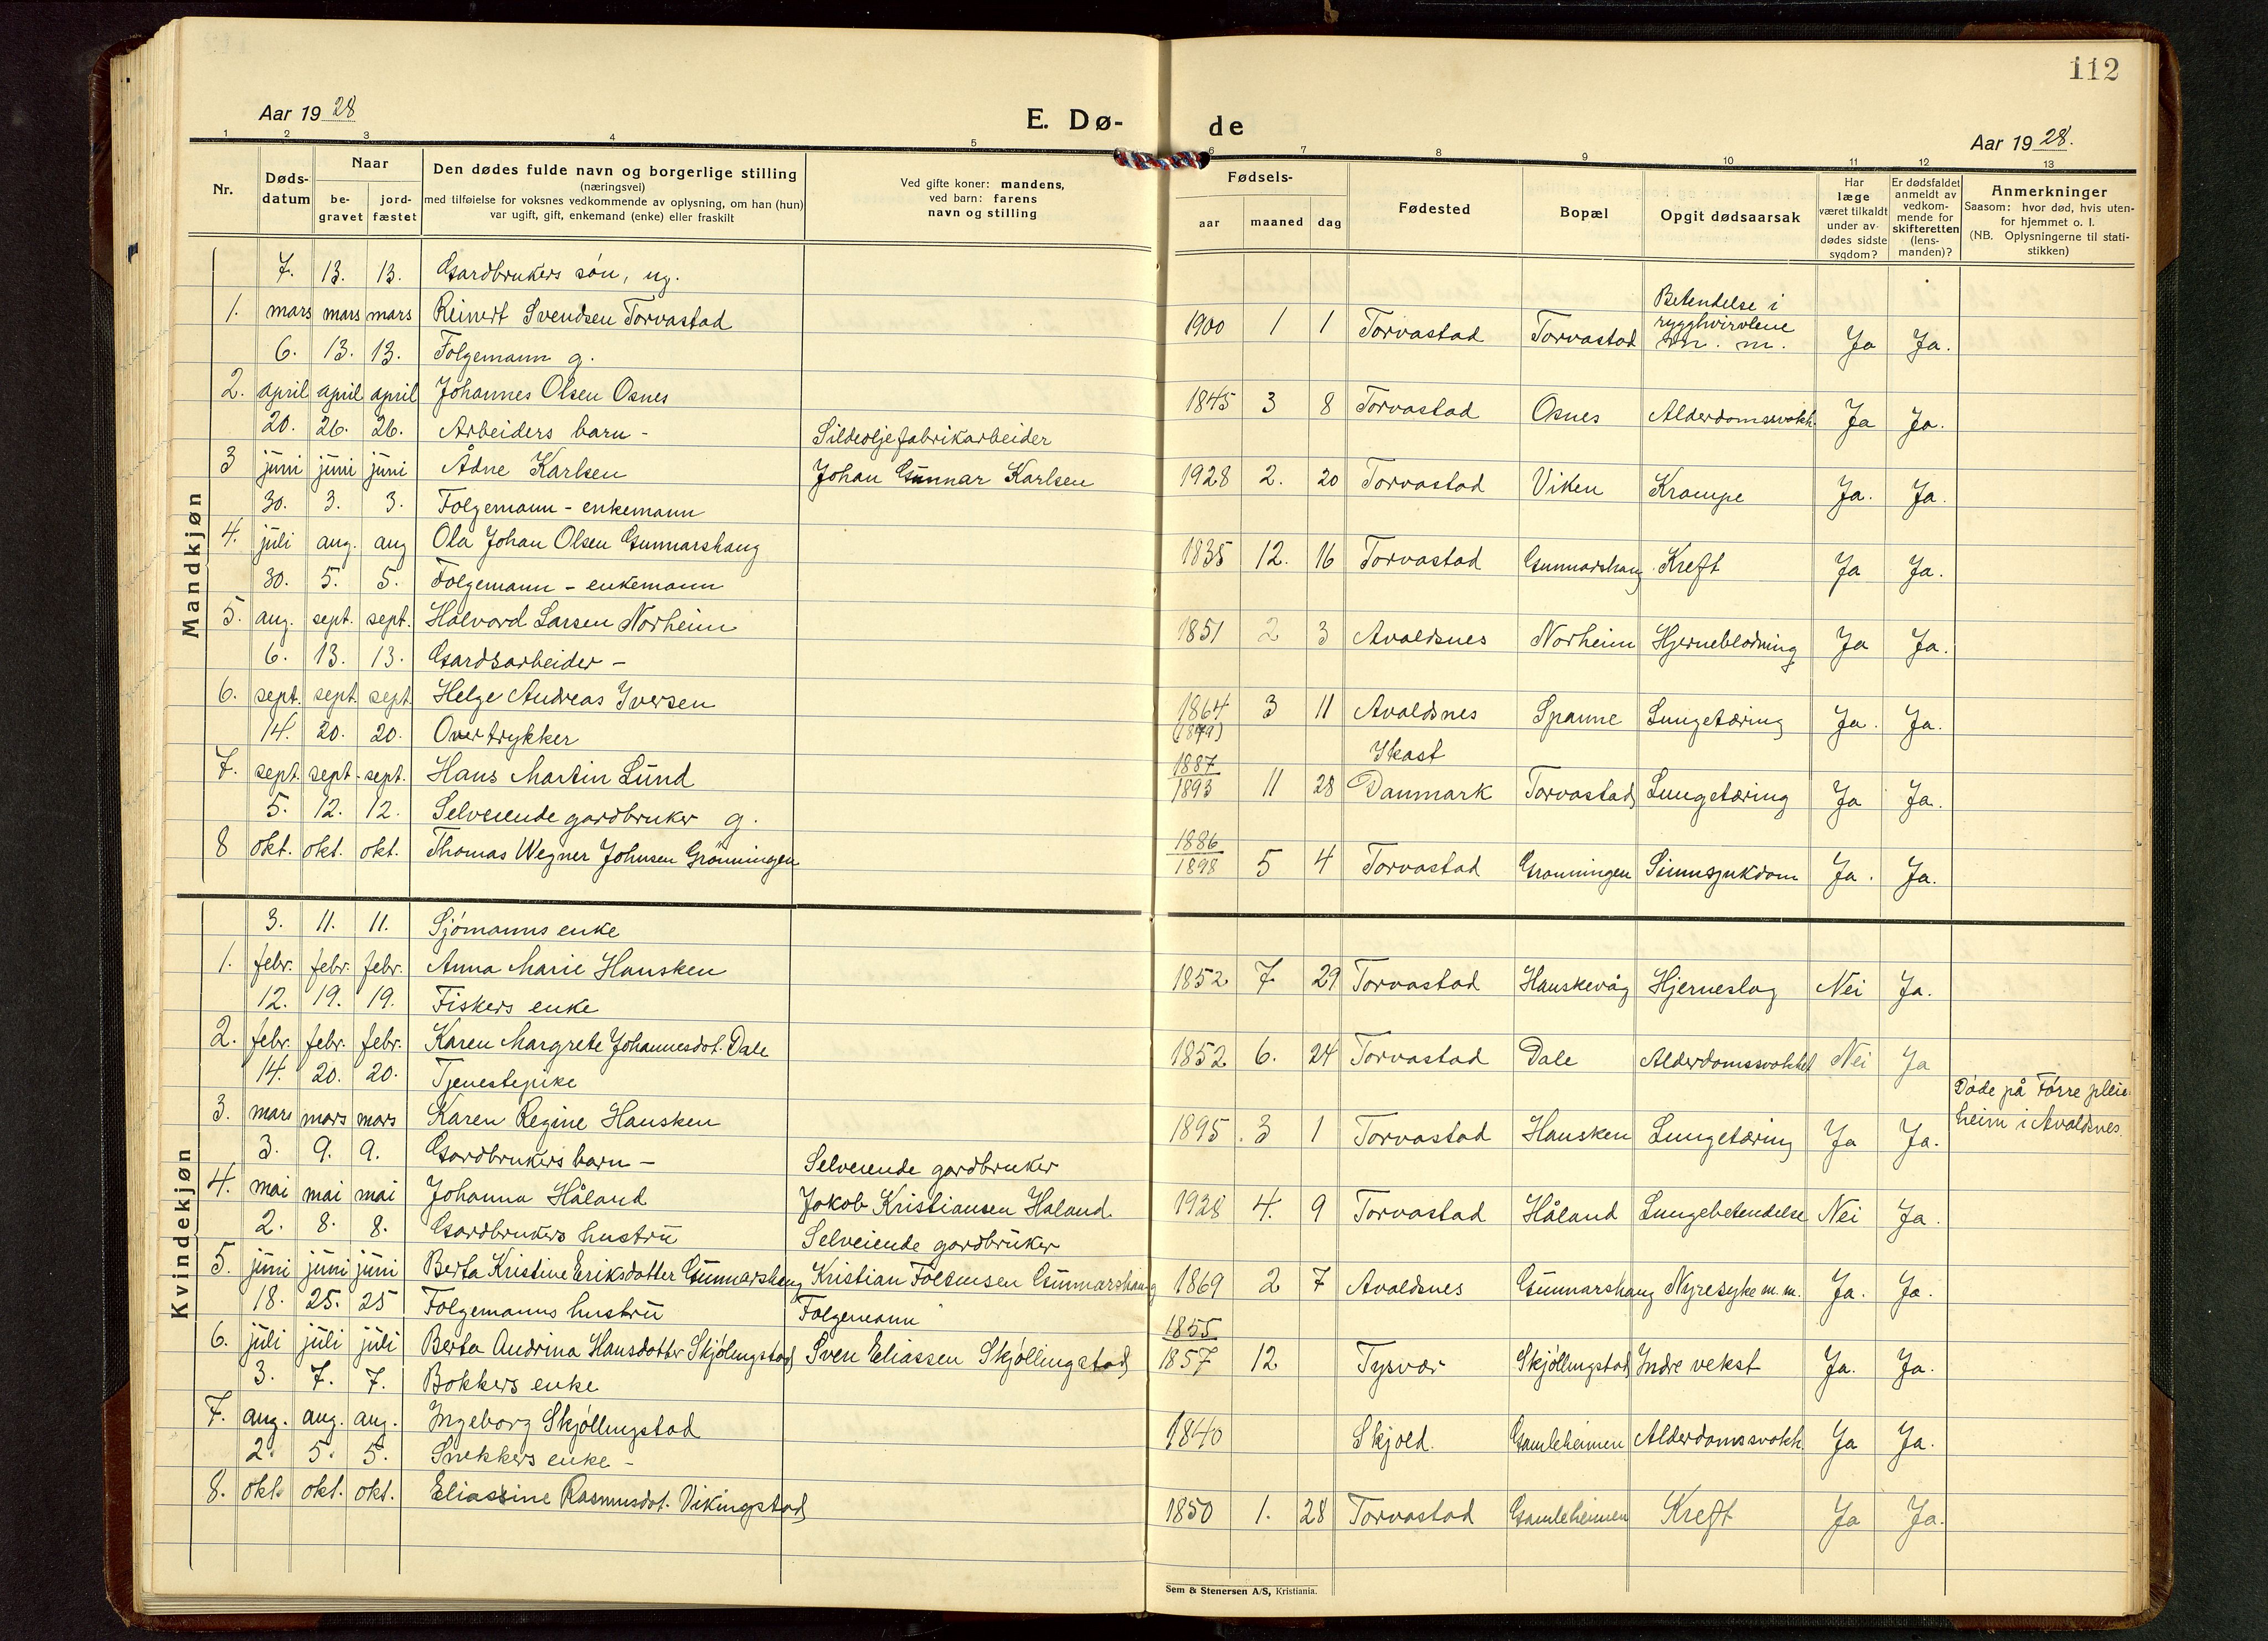 112
Aar 1928
E. Dø-
de
Aar 1928.
1 2 3 4 5 6 7 8 9 10 11 12 13
Nr.
Døds-
datum
Naar
be-
gravet
jord-
fæstet
Den dødes fulde navn og borgerlige stilling
(næringsvei)
med tilføielse for voksnes vedkommende av oplysning, om han (hun)
var ugift, gift, enkemand (enke) eller fraskilt
Ved gifte koner: mandens,
ved barn: farens
navn og stilling
Fødsels-
aar maaned dag
Fødested
Bopæl
Opgit dødsaarsak
Har
læge
været tilkaldt
under av-
dødes sidste
sygdom?
Er dødsfaldet
anmeldt av
vedkom-
mende for
skifteretten
(lens-
manden)?
Anmerkninger
Saasom: hvor død, hvis uten-
for hjemmet o. l.
(NB. Oplysningerne til stati-
stikken)
Mandkjøn
7. 13. 13. Gardbrukers søn, ug.
1. mars mars mars Reinert Svendsen Torvastad 1900 1 1 Torvastad Torvastad Betendelse i
rygghvirvlene
m. m. Ja Ja.
6. 13. 13. Folgemann g.
2. april april april Johannes Olsen Osnes 1845 3 8 Torvastad Osnes Alderdomssvakh. Ja Ja.
20. 26. 26. Arbeiders barn - Sildeoljefabrikarbeider
3 juni juni juni Ådne Karlsen Johan Gunnar Karlsen 1928 2. 20 Torvastad Viken Krampe Ja. Ja.
30. 3. 3. Folgemann - enkemann
4. juli aug. aug Ola Johan Olsen Gunnarshaug 1835 12. 16 Torvastad Gunnarshaug Kreft Ja Ja.
30. 5. 5. Folgemann - enkemann
5. aug. sept. sept. Halvord Larsen Norheim 1851 2 3 Avaldsnes Norheim Hjerneblødning Ja Ja.
6. 13. 13. Gardsarbeider -
6. sept. sept. sept Helge Andreas Iversen 1864 3 11 Avaldsnes Spanne Lungetæring Ja. Ja.
14. 20. 20. Overtrykker Ikast
7. sept. sept. sept. Hans Martin Lund 1887
1893 11 28 Danmark Torvastad Lungetæring Ja Ja.
5. 12. 12. Selveiende gardbruker g.
8 okt. okt. okt. Thomas Wegner Johnsen Grønningen 1886
1898 5 4 Torvastad Grønningen Sinnssjukdom Ja. Ja.
Kvindekjøn
3. 11. 11. Sjømanns enke
1. febr. febr. febr. Anna Marie Hausken 1852 7 29 Torvastad Hauskevåg Hjerneslag Nei Ja.
12. 19. 19. Fiskers enke
2. febr. febr. febr. Karen Margrete Johannesdot. Dale 1852 6. 24 Torvastad Dale Alderdomssvakhet Nei Ja
14. 20. 20. Tjenestepike
3. mars mars mars Karen Regine Hausken 1895 3 1 Torvastad Hausken Lungetæring Ja Ja. Døde på Førre pleie-
heim i Avaldsnes.
3. 9. 9. Gardbrukers barn - Selveiende gardbruker
4. mai mai mai Johanna Håland Jakob Kristiansen Håland 1928 4. 9 Torvastad Håland Lungebetendelse Nei Ja.
2. 8. 8. Gardbrukers hustru Selveiende gardbruker
5. juni juni juni Berta Kristine Eriksdotter Gunnarshaug Kristian Gunnarshaug 1869 2 7 Avaldsnes Gunnarshaug Nyresyke m.m. Ja. Ja.
18. 25. 25 Folgemanns hustru Folgemann
6. juli juli juli Berta Andrina Hansdotter Skjølingstad Sven Eliassen Skjøllingstad 1855
1857 12 Tysvær Skjøllingstad Indre vekst Ja. Ja.
3. 7. 7. Bøkkers enke
7. aug. aug. aug. Ingeborg Skjøllingstad 1840 Skjold. Gamleheimen Alderdomssvakh Ja Ja.
2. 5. 5. Snekkers enke -
8. okt. okt. okt. Eliassine Rasmusdot. Vikingstad 1850 1. 28 Torvastad Gamleheimen Kreft Ja Ja.
Sem & Stenersen A/S, Kristiania.